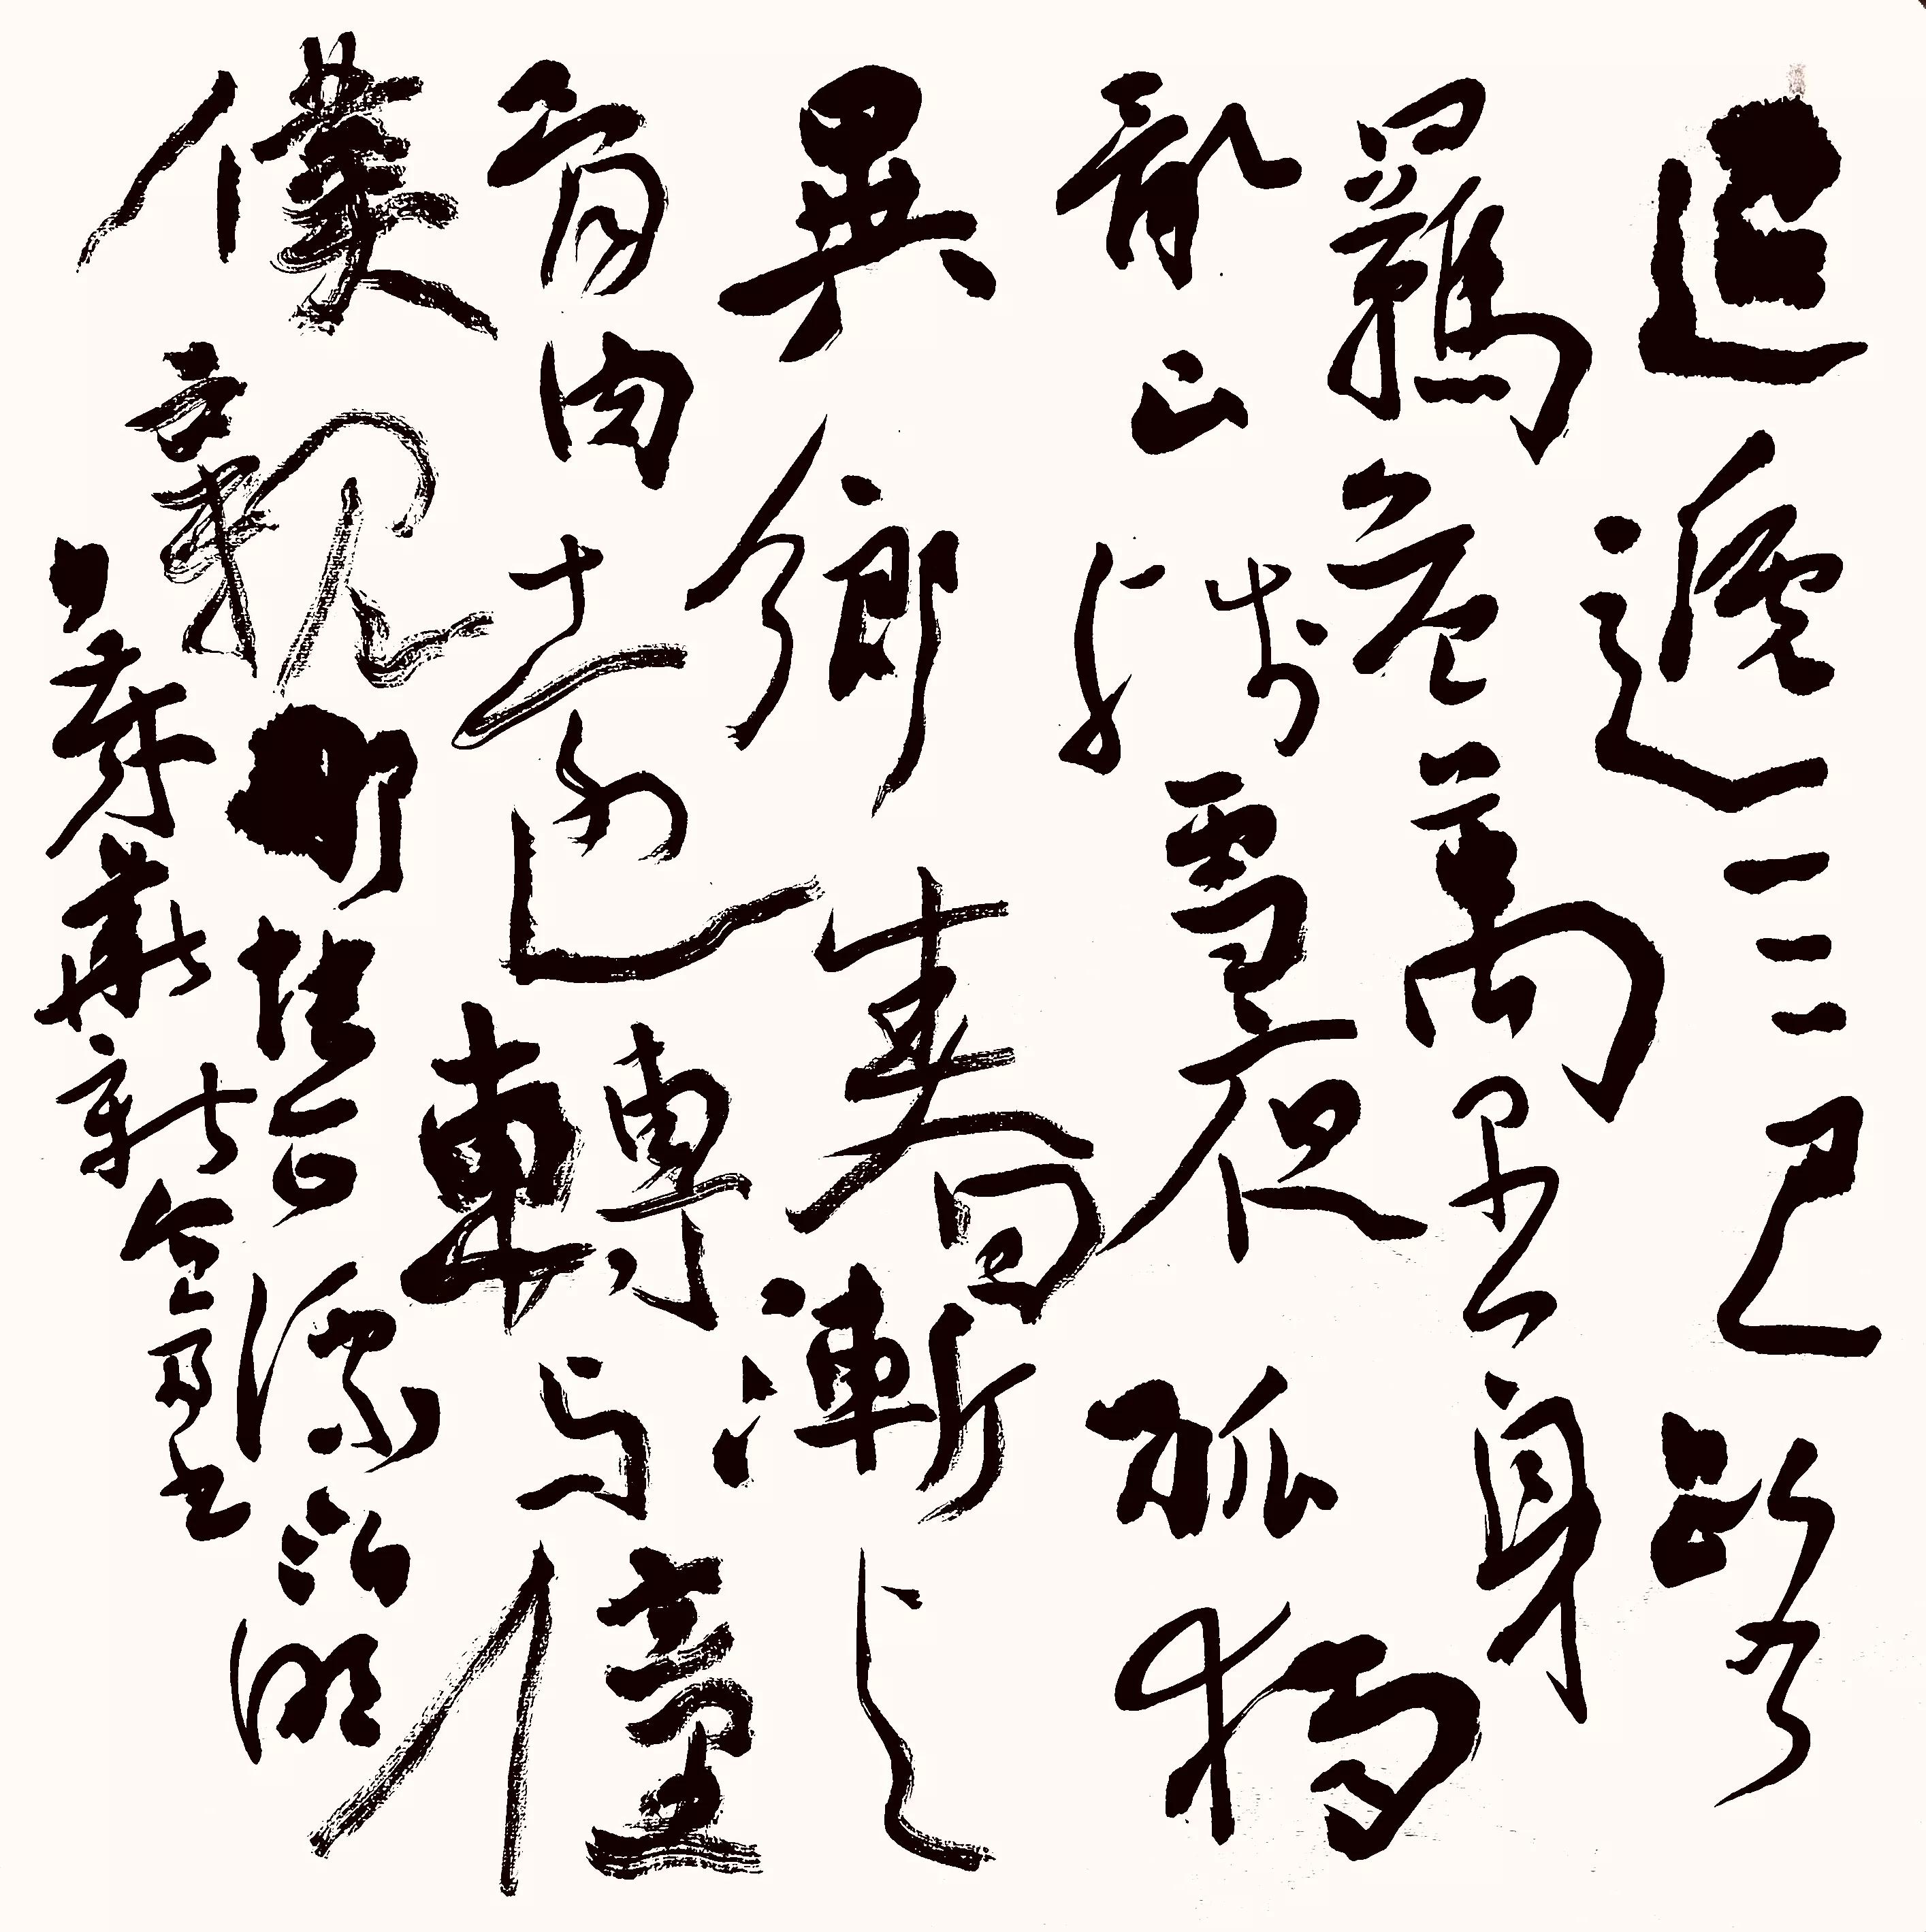 迢遞三巴路
羈危萬里身
亂山殘雪夜孤獨
異鄉春漸
骨肉遠轉与僮
僕親那堪正漂泊明
日歲華新书